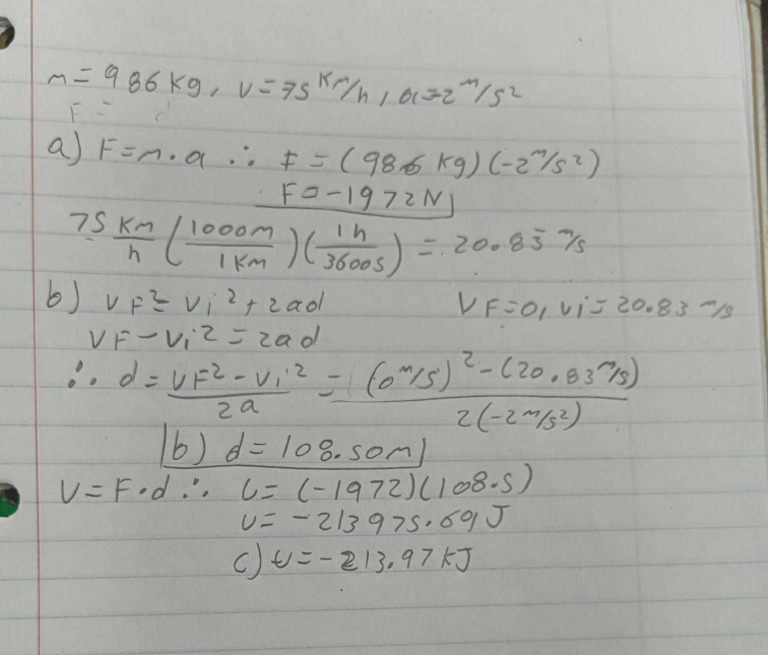 m = 986 kg, v = 75 Km/h, a = 2 m/s²
F =
a) F = m · a ∴ F = (986 kg)(-2 m/s²)
F = -1972 N
75 Km/h (1000m/1Km)(1h/3600s) = 20.83 m/s
b) VF² = Vi² + 2ad VF = 0, Vi = 20.83 m/s
VF - Vi² = 2ad
∴ d = VF² - Vi²/2a = (0 m/s)² - (20.83 m/s)/2(-2 m/s²)
b) d = 108.50m
U = F · d ∴ U = (-1972)(108.5)
U = -213975.69J
c) U = -213.97 KJ